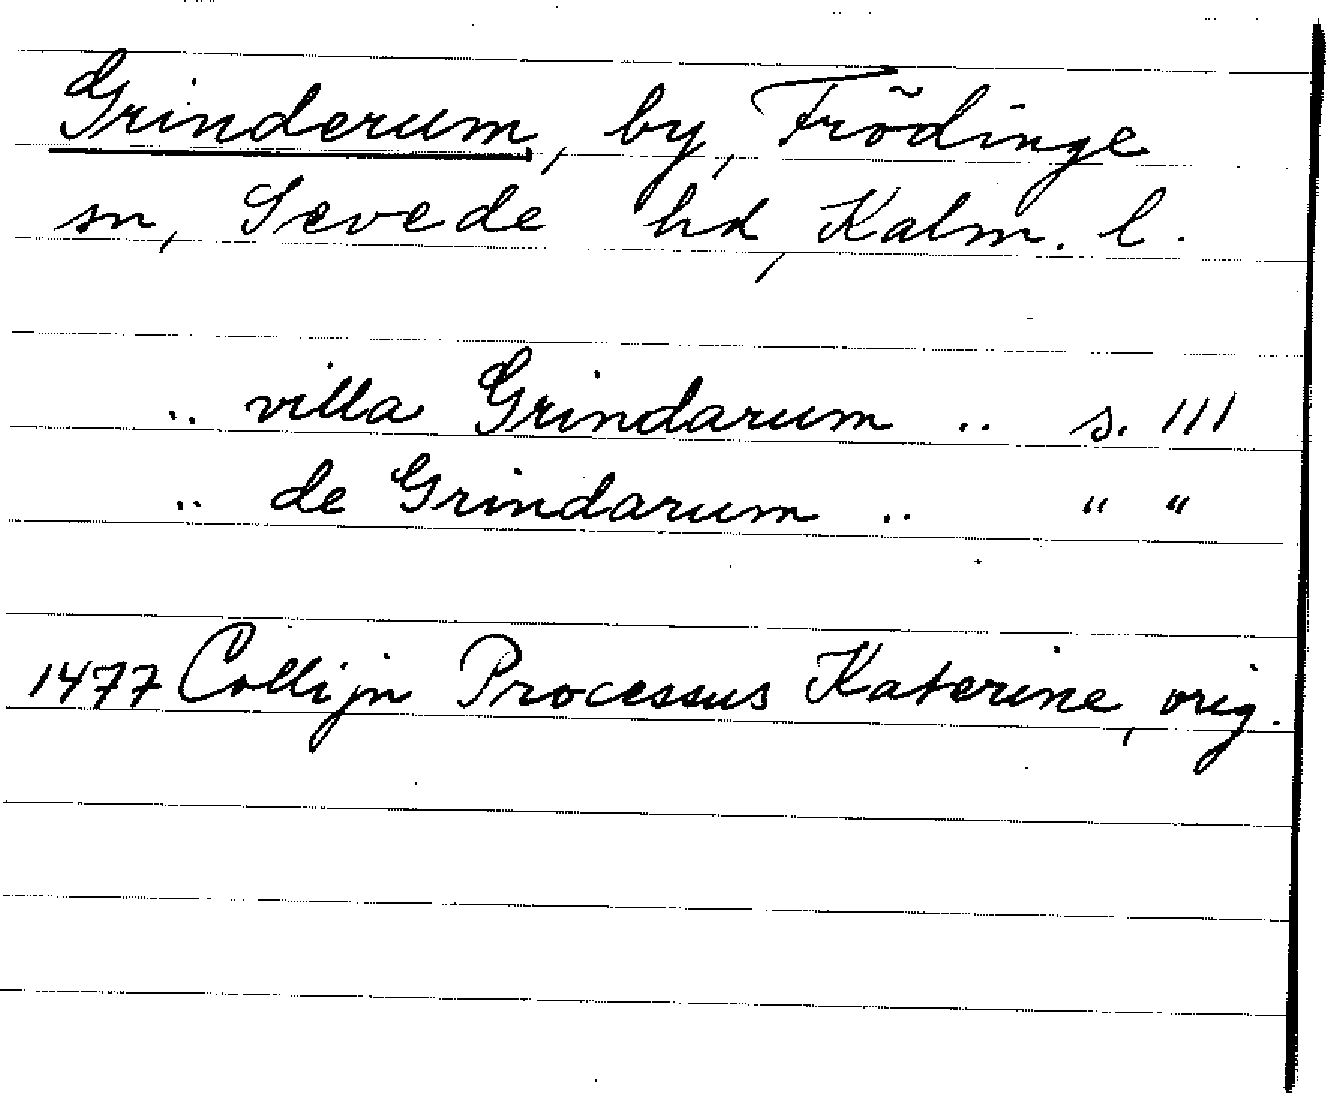 Grinderum, by, Frödinge
sn, Sevede hd, Kalm. l.
.. villa Grindarum .. s. 111
.. de Grindarum .. " "
1477 Collijn Processus Katerine, orig.